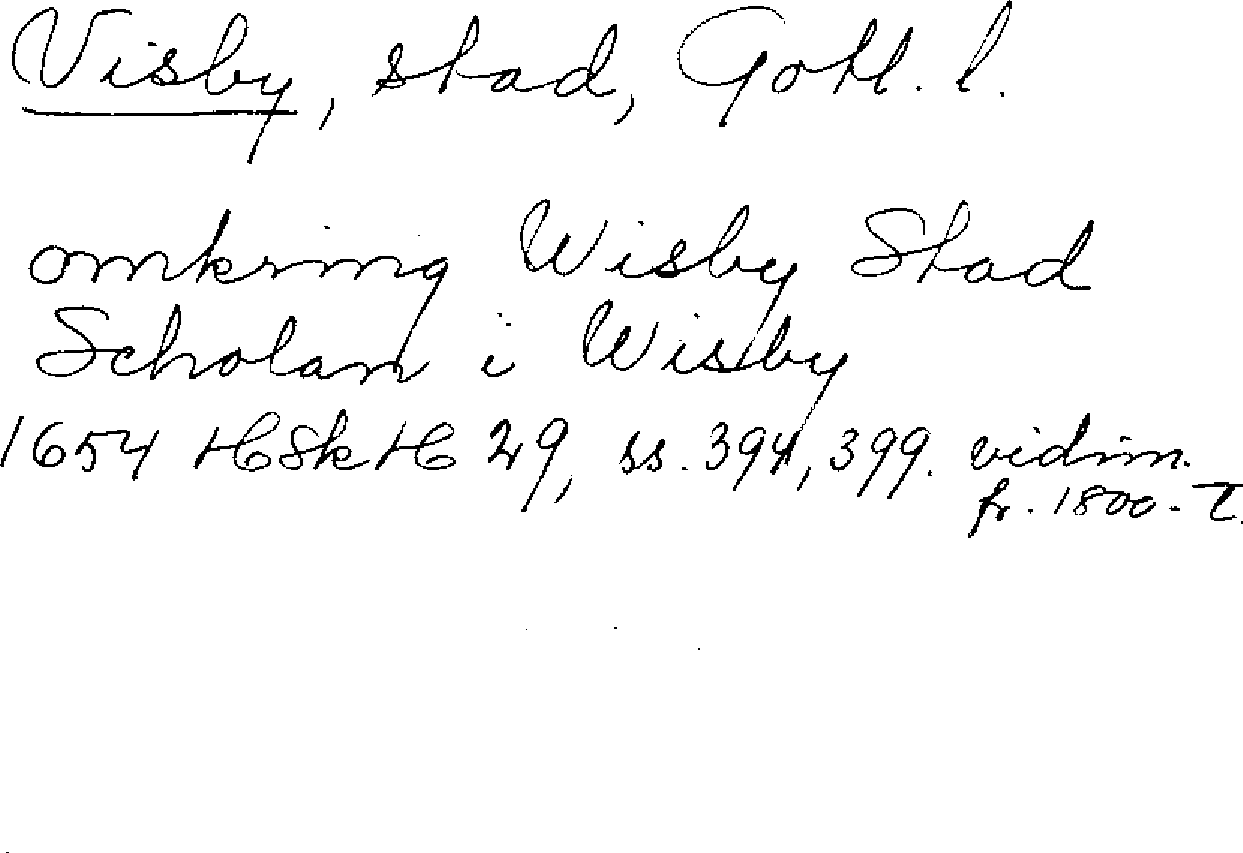 Visby, stad, Gotl. l.
omkring Wisby Stad
Scholan i Wisby
1654 HSkH 29, ss. 394, 399. vidim.
fr. 1800-T.